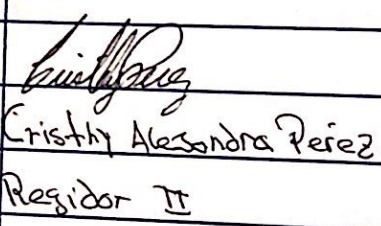 Cristhy Alessandra Perez
Regidor II